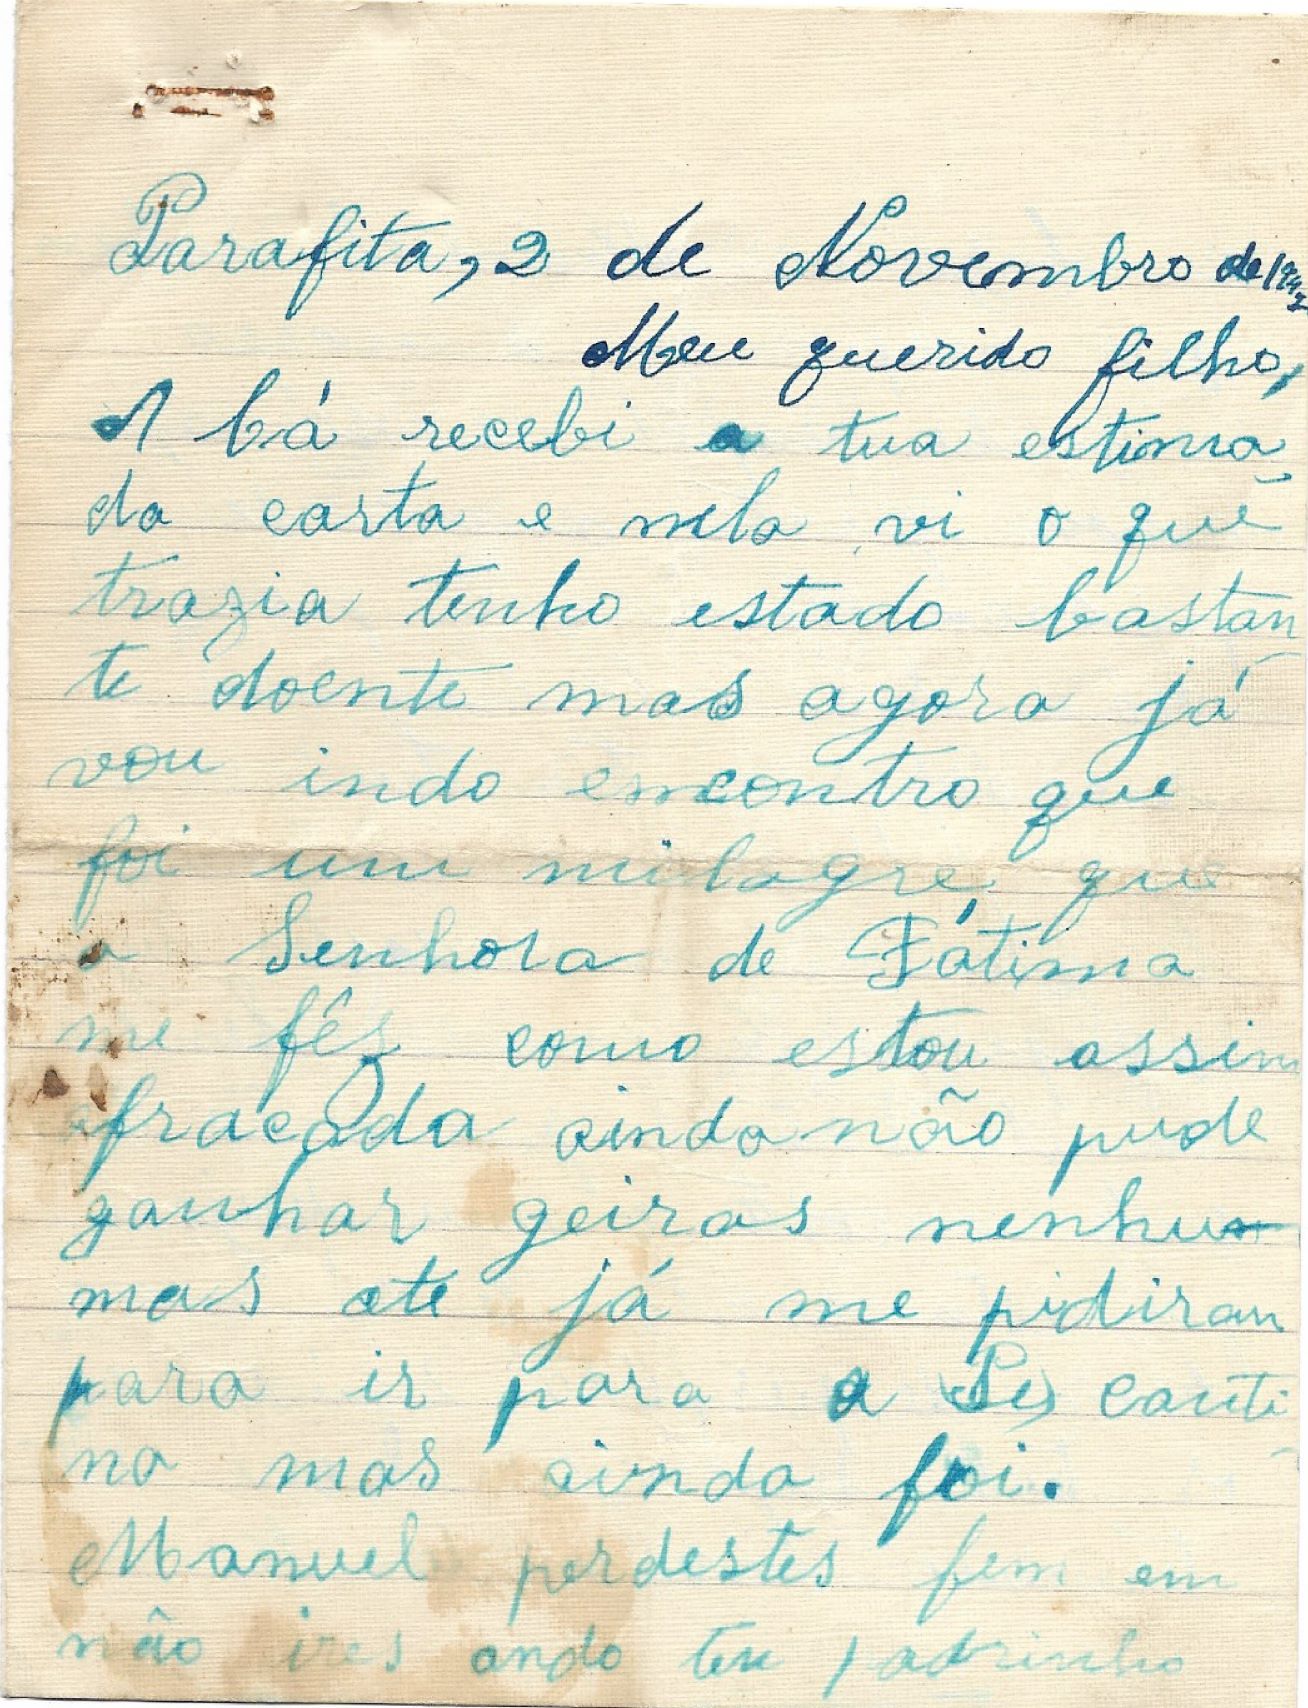 Parafita, 2 de Novembro de 1942
Meu querido filho,
A bá recebi a tua estima
da carta e nela vi o que
trazia tenho estado bastan
te doente mas agora já
vou indo emcontro que
foi um milagre que
a Senhora de Fátima
me fês como estou assim
afracada ainda não pude
ganhar geiras nenhu
mas ate já me pidiran
para ir para a canti
na mas ainda foi.
Manuel perdestes fem em
não ires ando teu padrinho